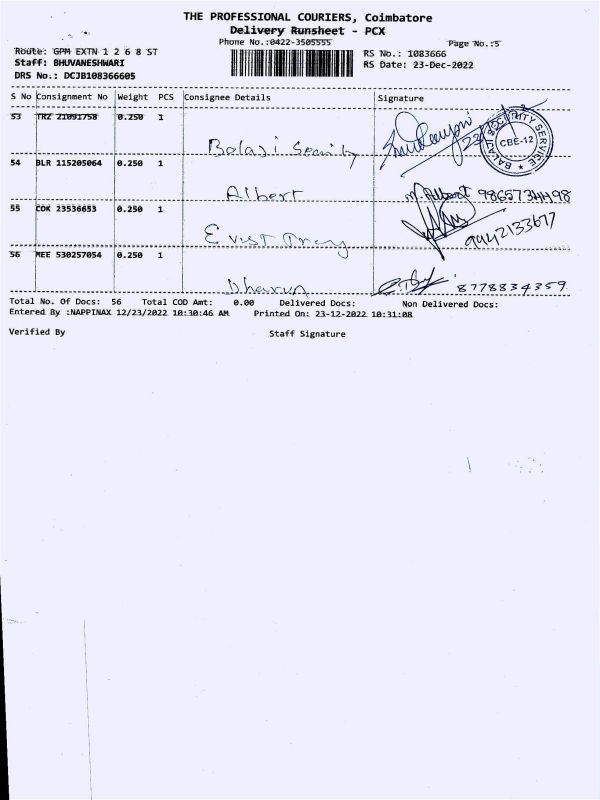 THE PROFESSIONAL COURIERS, Coimbatore
Delivery Runsheet - PCX
Phone No.:0422-3505555
Page No.:5
Route: GPM EXTN 1 2 6 8 ST
RS No.: 1083666
Staff: BHUVANESHWARI
RS Date: 23-Dec-2022
DRS No.: DCJB108366605
S No Consignment No Weight PCS Consignee Details Signature
53 TRZ 21091758 0.250 1
Balaji
BALAJI SECURITY SERVICE
CBE-12
54 BLR 115205064 0.250 1
Albert M. Albert 9865734498
55 COK 23536653 0.250 1
9442133677
56 MEE 530257054 0.250 1
8778834359
Total No. Of Docs: 56 Total COD Amt: 0.00 Delivered Docs: Non Delivered Docs:
Entered By :NAPPINAX 12/23/2022 10:30:46 AM Printed On: 23-12-2022 10:31:08
Verified By Staff Signature